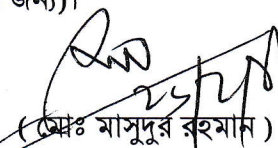 জন্য)।
(মোঃ মাসুদুর রহমান)